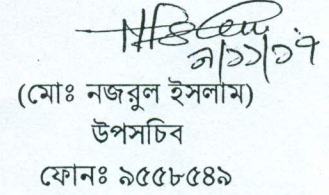 ৯/১১/১৭
(মোঃ নজরুল ইসলাম)
উপসচিব
ফোনঃ ৯৫৫৮৫৪৯